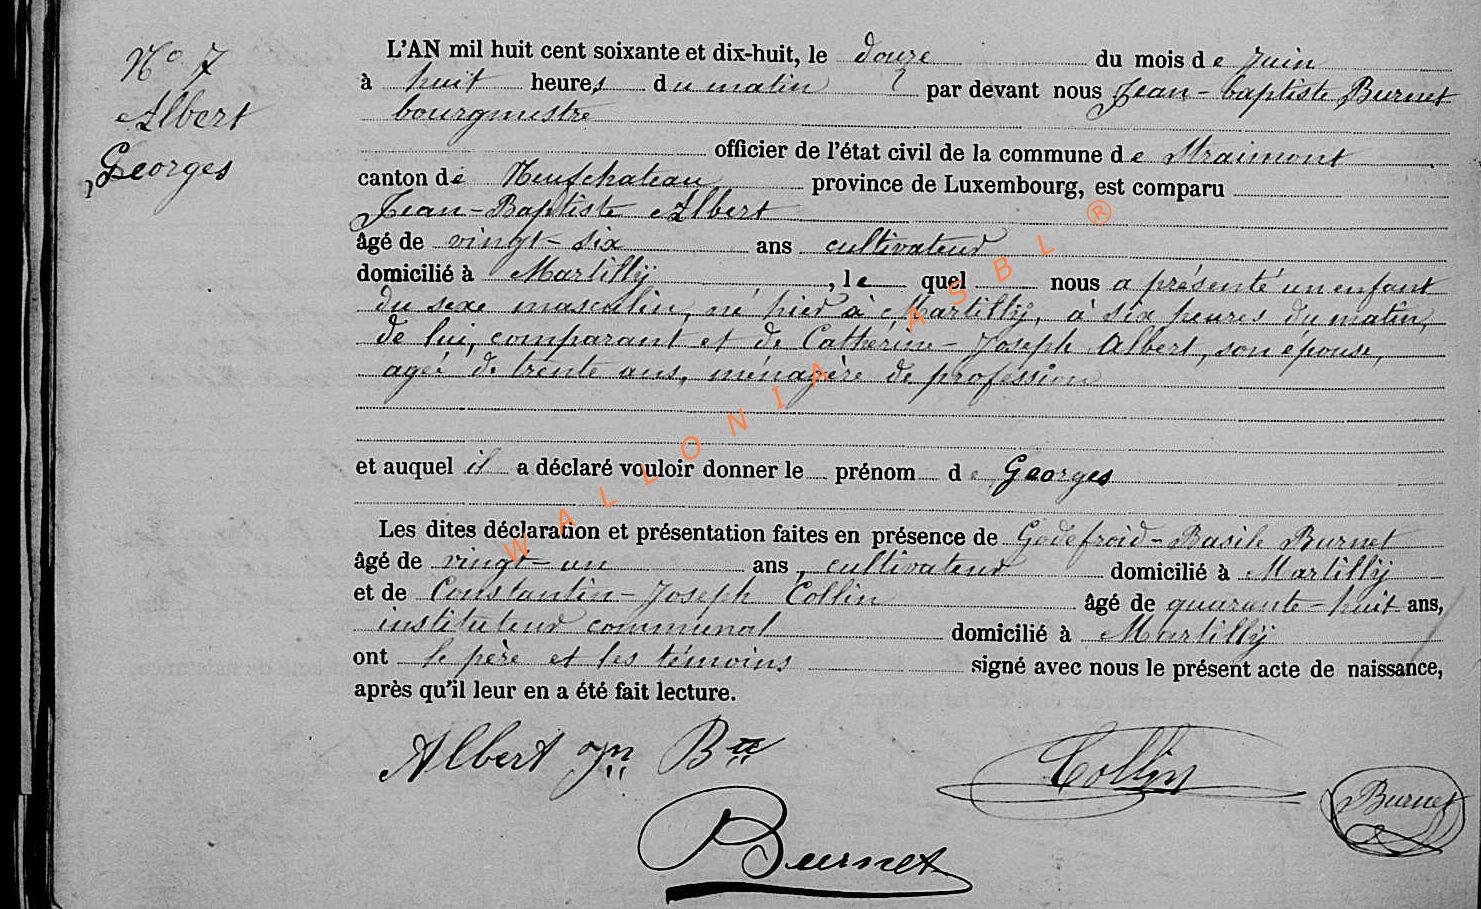 N° 7
Albert
Georges
L'AN mil huit cent soixante et dix-huit, le douze du mois de Juin
à huit heures du matin par devant nous Jean-baptiste Burnet
bourgmestre
officier de l'état civil de la commune de Straimont
canton de Neufchateau province de Luxembourg, est comparu
Jean-Baptiste Albert
âgé de vingt-six ans cultivateur
domicilié à Martilly, le quel nous a présenté un enfant
du sexe masculin, né hier à Martilly, à six heures du matin,
de lui, comparant et de Catherine-Joseph Albert, son epouse,
agée de trente ans, ménagère de profession
et auquel il a déclaré vouloir donner le prénom de Georges
Les dites déclaration et présentation faites en présence de Godefroid-Basile Burnet
âgé de vingt-un ans, cultivateur domicilié à Martilly
et de Constantin-Joseph Collin âgé de quarante-huit ans,
instituteur communal domicilié à Martilly
ont le père et les témoins signé avec nous le présent acte de naissance,
après qu'il leur en a été fait lecture.
Albert Jn Bte
Collin
Burnet
Burnet
WALLONIA ASBL ®